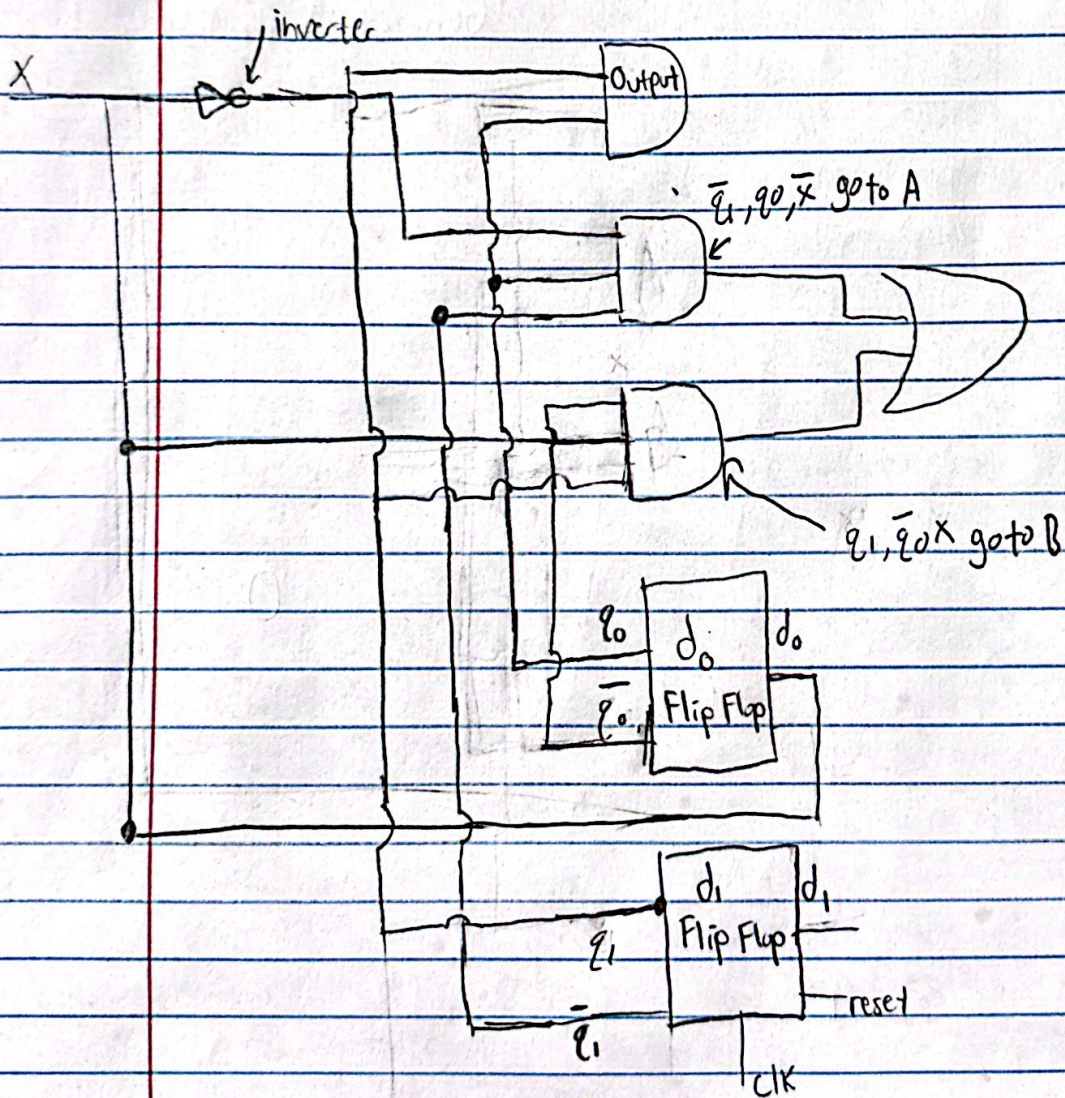 inverter
X
Output
q̅₁, q0, x̅ go to A
A
q1, q̅0 x go to B
q₀
d₀
d₀
q̅₀
Flip Flop
d₁
d₁
Flip Flop
q₁
reset
q̅₁
clk